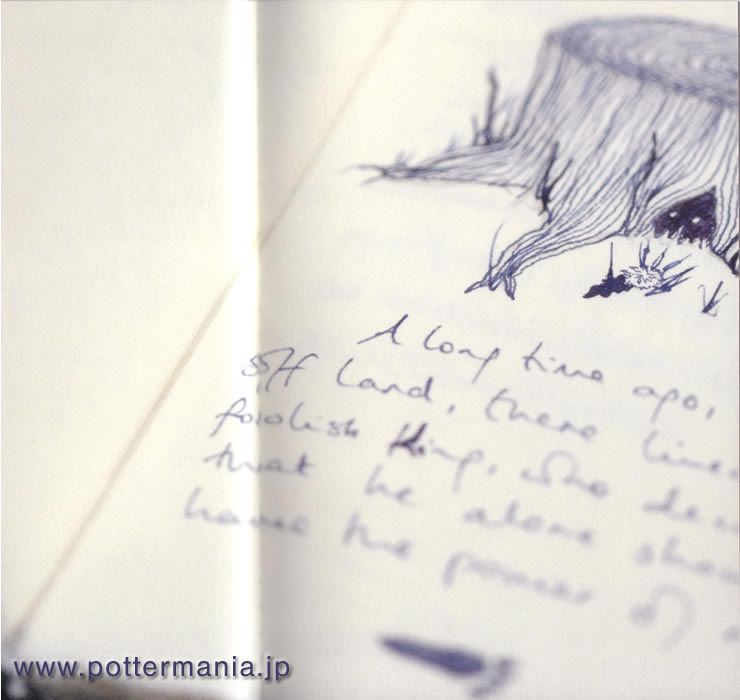 A long time ago,
off land, there
foolish King, who
that he alone
have the power of
www.pottermania.jp